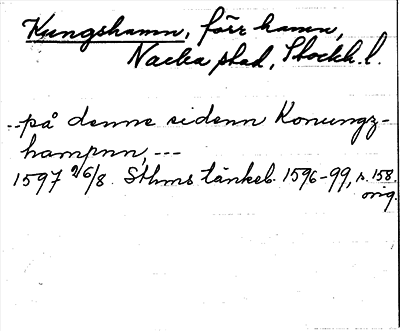 Kungshamn, förr hamn,
Nacka stad, Stockh. l.
--på denne sidenn Konungz-
hampnn, ---
1597 2/6/8. Sthms tänkeb. 1596-99, s. 158.
orig.